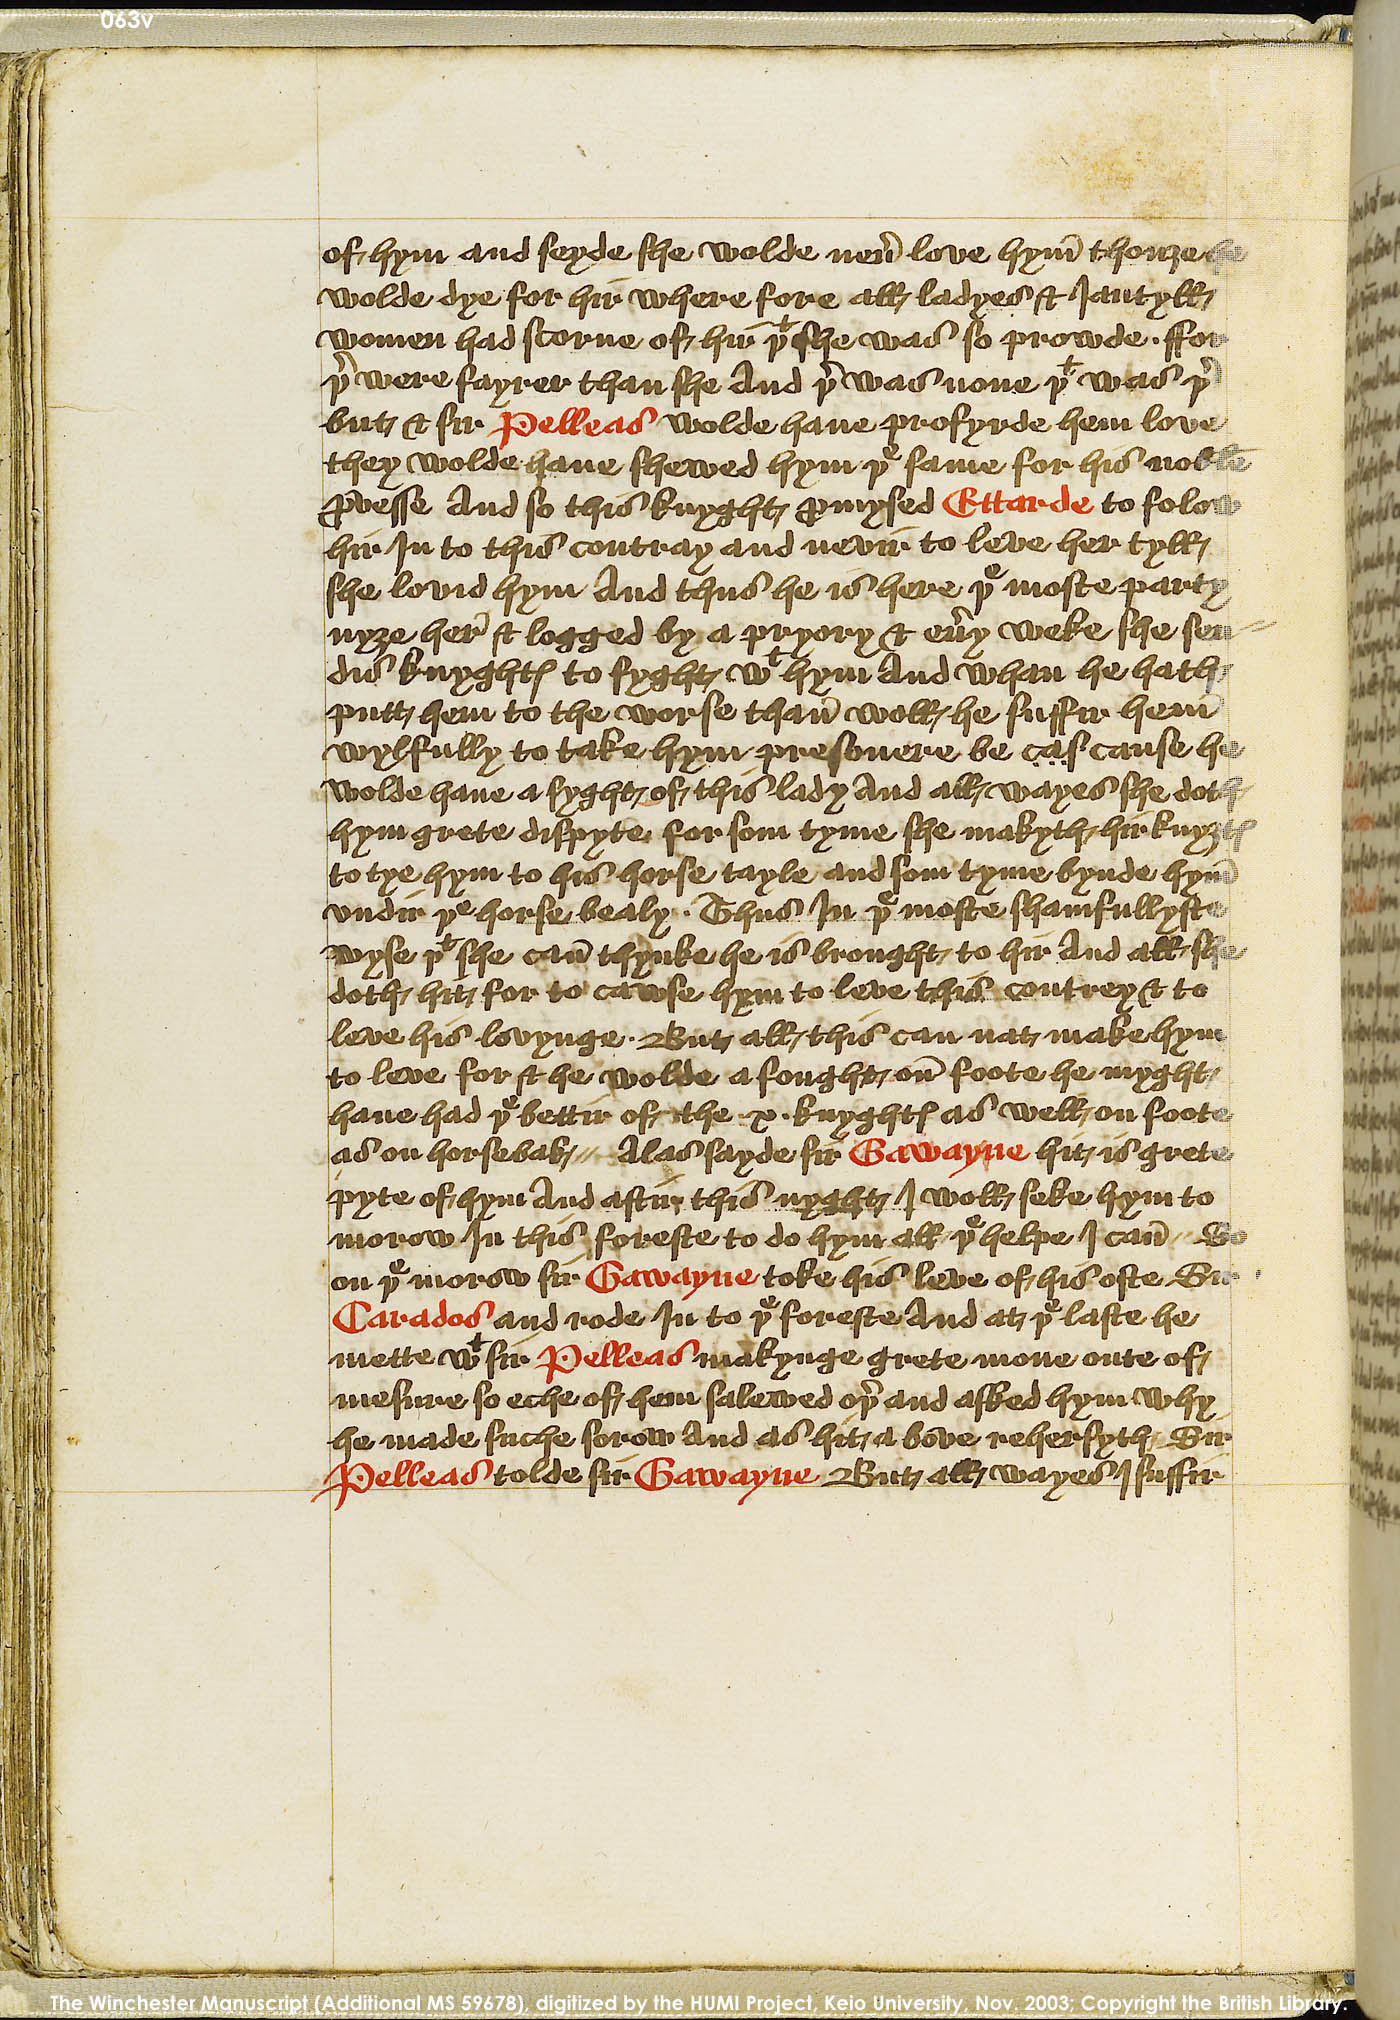 063v
of hym and seyde she wolde neu̅ love hym̅ thouȝe he
wolde dye for hir where fore all ladyes & Jantyll
women had scorne of hir þᵗ she was so prowde . ffor
þ̅ were fayrer than she And þ̅ was none þᵗ was þ̅
but & sir Pelleas wolde haue profyrde hem love
they wolde haue shewed hym þᵉ same for his noble̅
ꝓvesse And so this knyght ꝓmysed Ettarde to folow
hir In to this contray and nevir to leve her tyll
she lovid hym And thus he is here þᵉ moste party
nyȝe her̅ & logged by a pryory & eu̅y weke she sen
dis knyghtꝭ to fyght wᵗ hym And whan he hath
putt hem to the worse than̅ woll he suffir hem̅
wylfully to take hym presonere be cas cause he
wolde haue a syght of this lady And all wayes she doth
hym grete dispyte for som tyme she makyth hir knyȝtꝭ
to tye hym to his horse tayle and som tyme bynde hym̅
vndir yᵉ horse bealy . Thus In þᵉ moste shamfullyste
wyse þᵗ she can̅ thynke he is brought to hir And all she
doth hit for to cawse hym to leve this contrey & to
leve his lovynge . But all this can nat make hym
to leve for & he wolde a fought on̅ foote he myght
haue had þᵉ bettir of the .x. knyghtꝭ as well on foote
as on horsebak // Alas sayde sir Gawayne hit is grete
pyte of hym And aftir this nyght I woll seke hym to
morow In this foreste to do hym all þᵉ helpe I can̅ // So
on þᵉ morow sir Gawayne toke his leve of his oste Sir
Carados and rode In to þᵉ foreste And at þᵉ laste he
mette wᵗ sir Pelleas makynge grete mone oute of
mesure so eche of hem salewed oþ̅ and asked hym why
he made suche sorow And as hit a bove rehersyth Sir
Pelleas tolde sir Gawayne But all wayes I suffir
The Winchester Manuscript (Additional MS 59678), digitized by the HUMI Project, Keio University, Nov. 2003; Copyright the British Library.